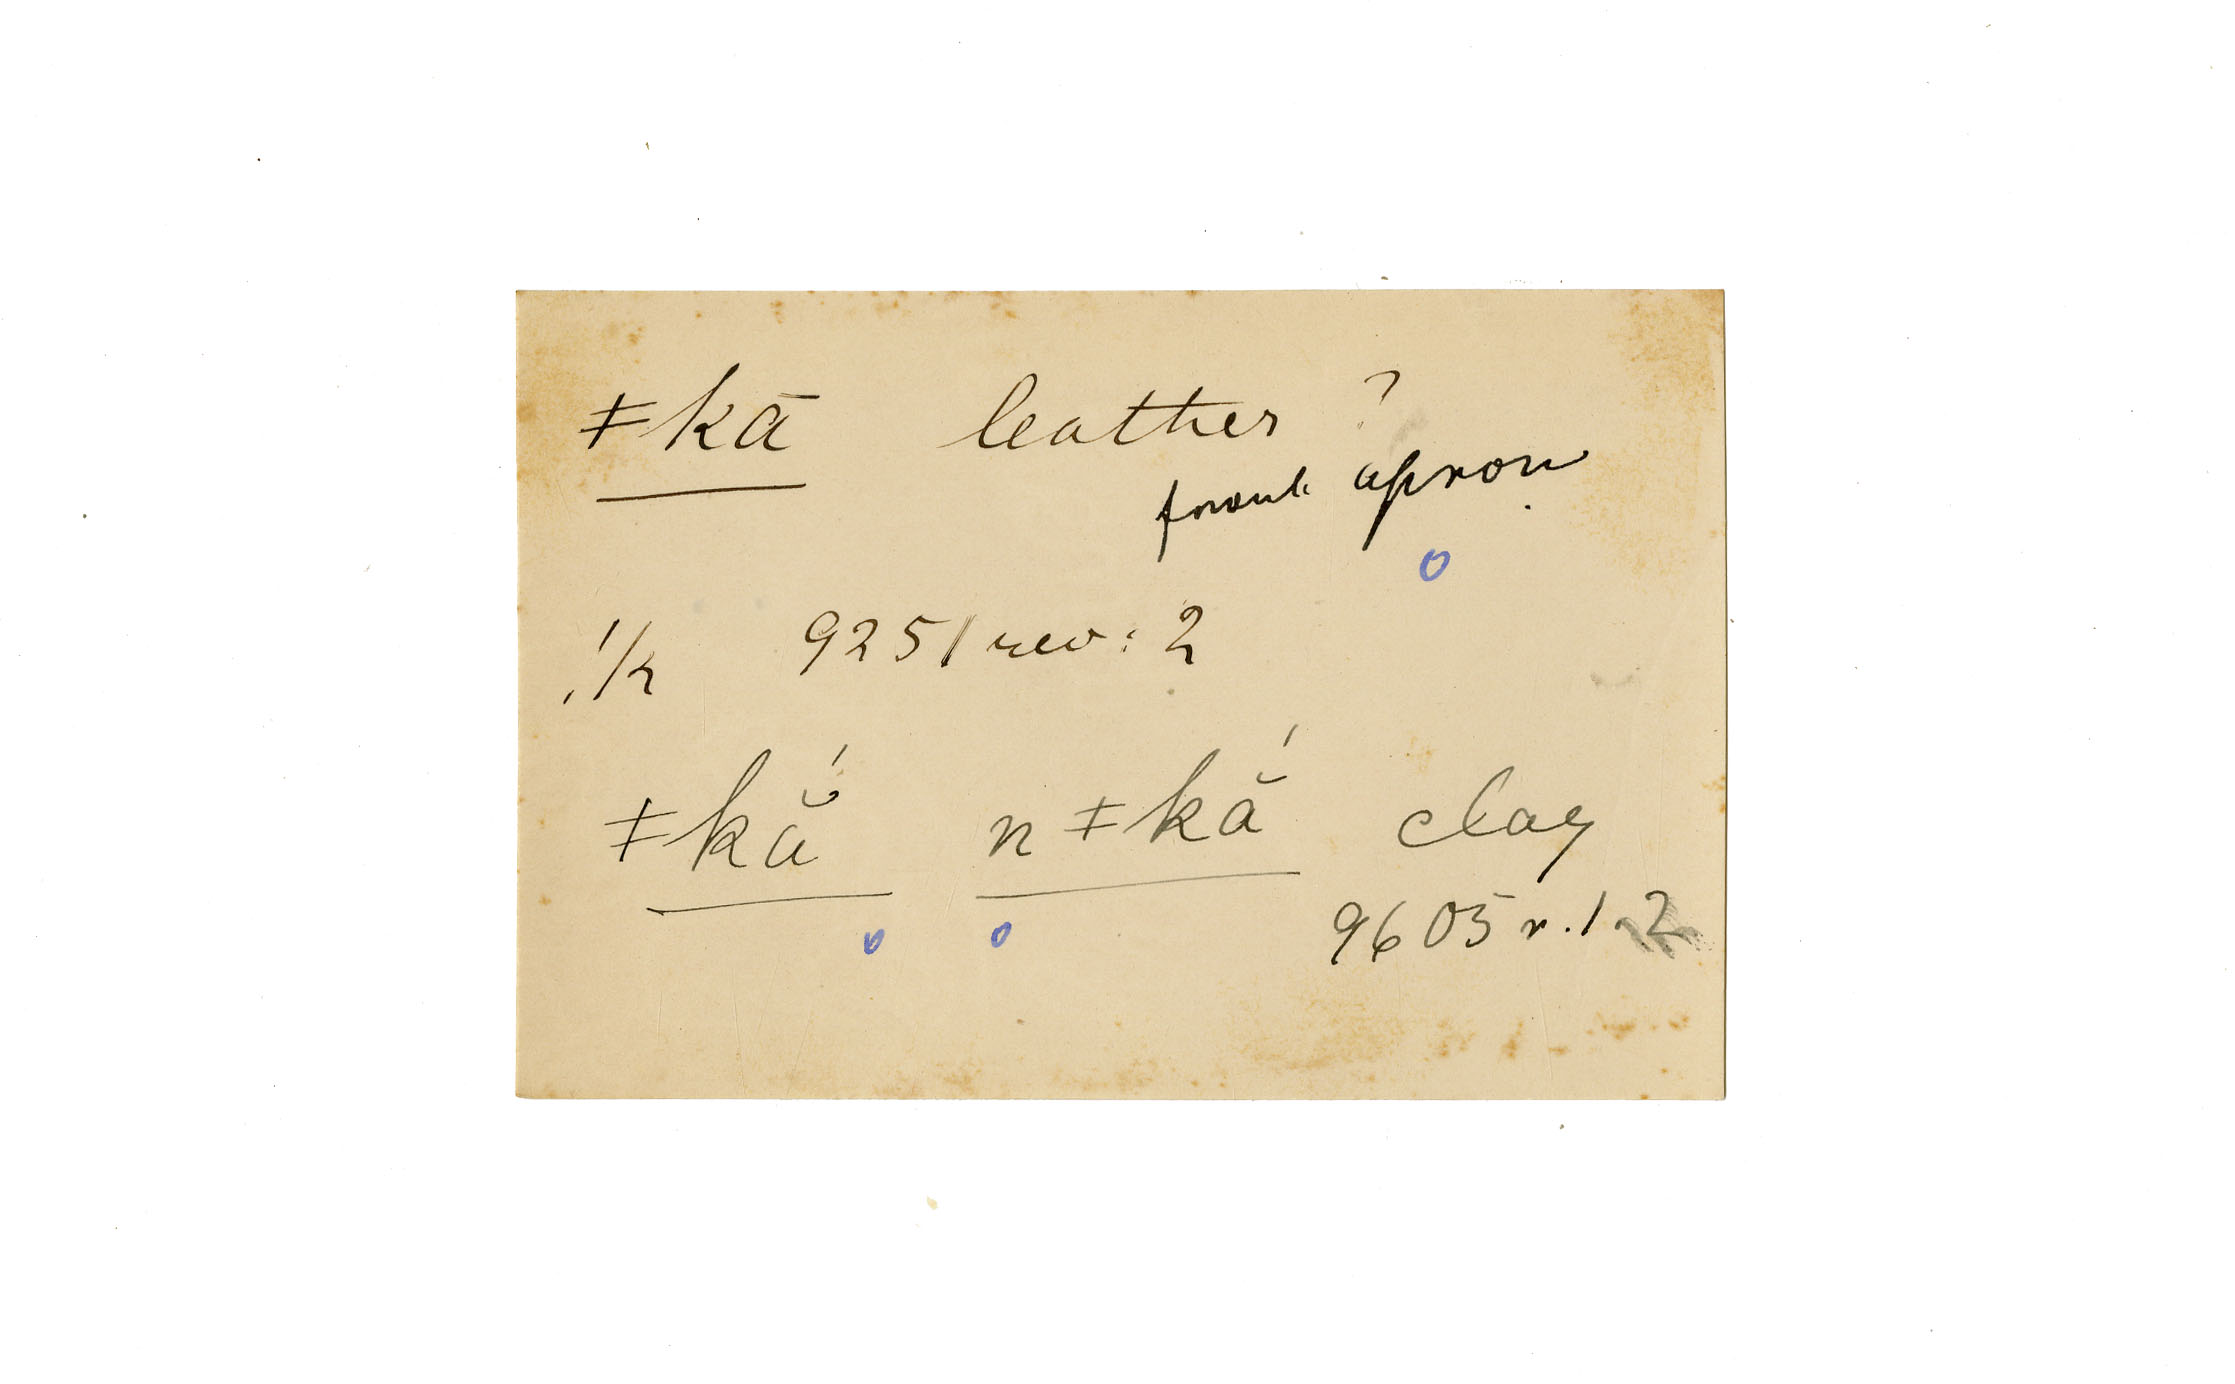 ǂkā leather ?
front apron
!k 9251 rev: 2
ǂkắ n ǂkắ clay
9605 r. 1